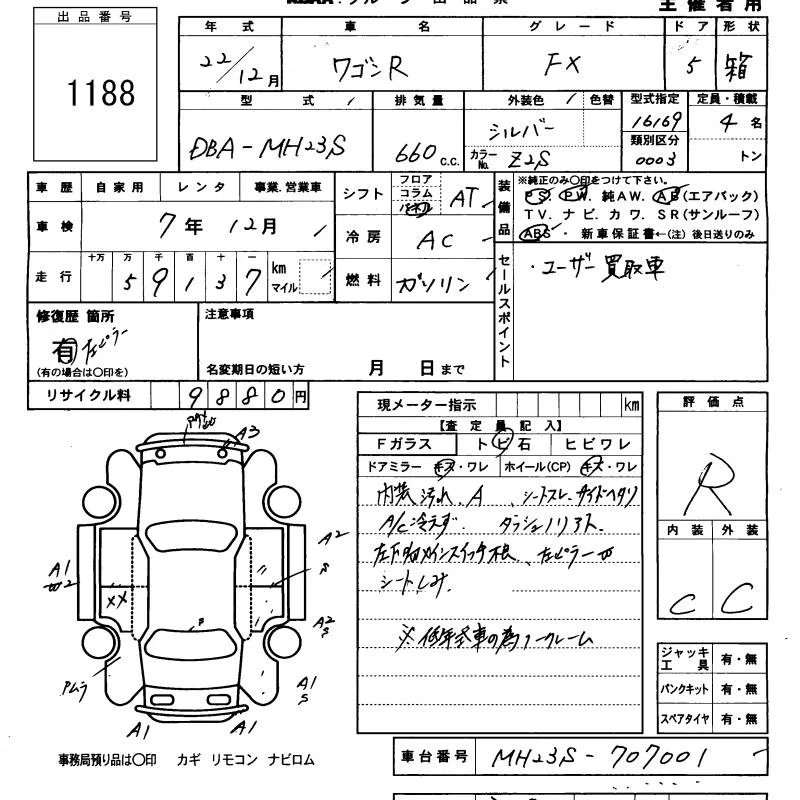 主催者用
出品番号
1188
年式 車名 グレード ドア 形状
22/12月 ワゴンR FX 5 箱
型式 排気量 外装色 色替 型式指定 定員・積載
DBA-MH23S 660c.c. シルバー 16169 4名
カラーNo. Z2S 類別区分 0003 トン
車歴 自家用 レンタ 事業.営業車
車検 7年 12月
走行 十万 万 千 百 十 一
5 9 1 3 7 km マイル
シフト フロア コラム パネル AT
冷房 AC
燃料 ガソリン
装備品
※純正のみ〇印をつけて下さい。
PS. PW. 純AW. AB(エアバック)
TV. ナビ. カワ. SR(サンルーフ)
ABS ・ 新車保証書←(注) 後日送りのみ
セールスポイント
・ユーザー買取車
修復歴 箇所
有 左ピラー
(有の場合は〇印を)
注意事項
名変期日の短い方 月 日まで
リサイクル料 9880円
現メーター指示 km
【査定員記入】
Fガラス トビ石 ヒビワレ
ドアミラー キズ・ワレ ホイール(CP) キズ・ワレ
内装汚れ.A シートスレ.サイドヘタリ
A/C冷えず.
シートしみ.
※低年式車の為ノークレーム
評価点
R
内装 外装
C C
ジャッキ工具 有・無
パンクキット 有・無
スペアタイヤ 有・無
A3
A2
S
A1
W2
XX
A2
S
アムラ
A1
S
A1
A1
事務局預り品は〇印 カギ リモコン ナビロム
車台番号 MH23S-707001